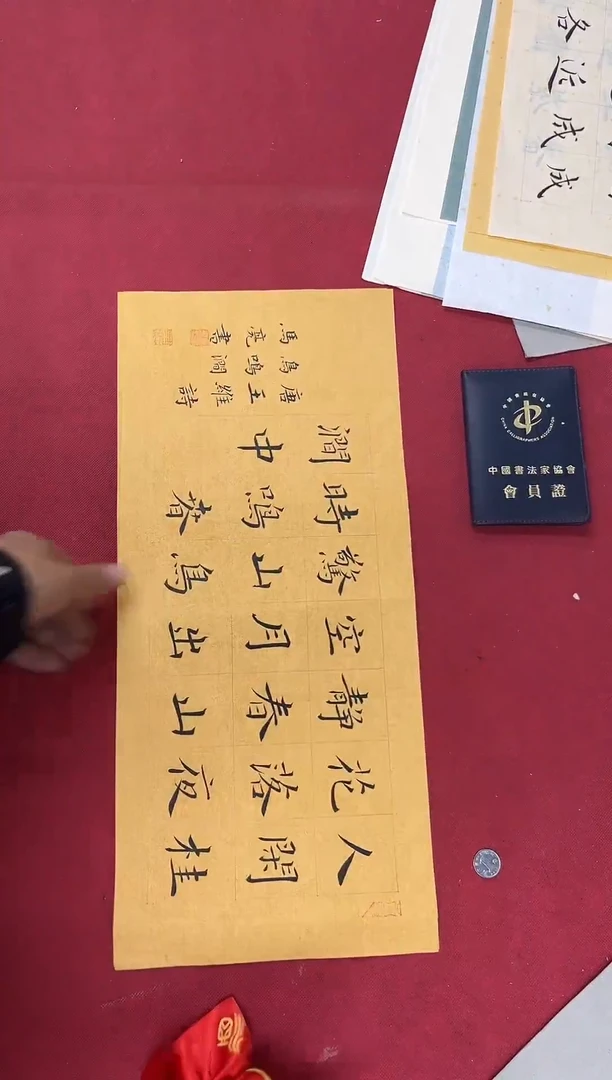 人閑桂
花落夜
靜春山
空月出
驚山鳥
時鳴春
澗中
唐王維詩
鳥鳴澗
馬亮書
中國書法家協會
CHINA CALLIGRAPHERS ASSOCIATION
中國書法家協會
會員證
各
近
成
成